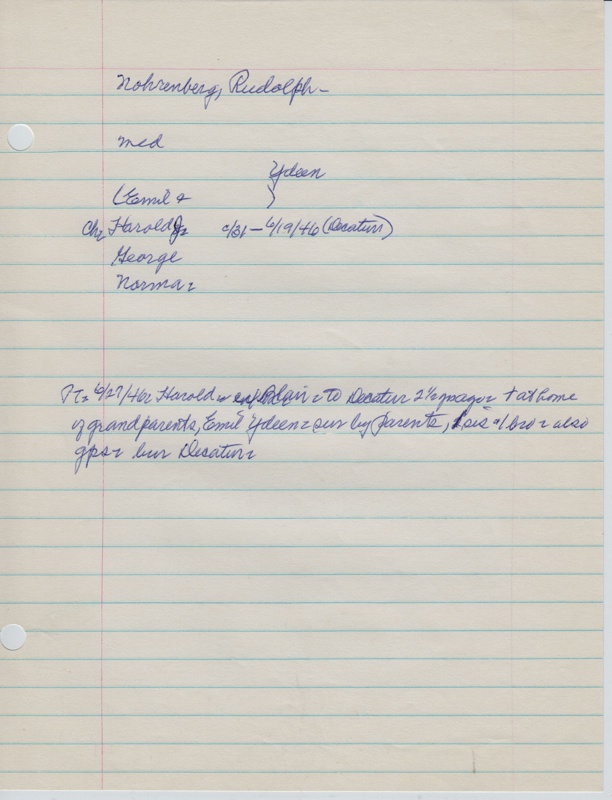 Nohrenberg, Rudolph -
med
Ydeen
(Emil & )
Ch= Harold J= c/31 - 6/19/46 (Decatur)
George
Norma=
PT= 6/27/46= Harold= Blair= to Decatur 2½ mago= + at home
of grandparents, Emil Ydeen= sur by parents, 1 sis &1 bro= also
gps= bur Decatur=